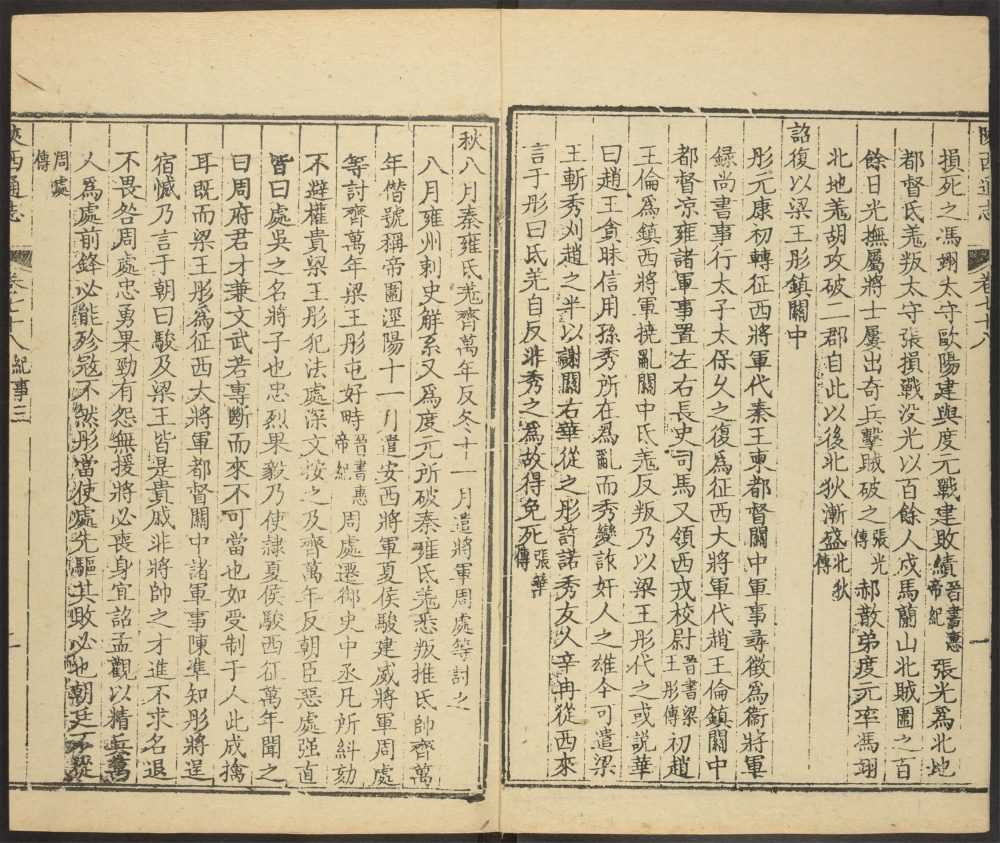 陝西通志
卷七十八
一
損死之馮翊太守歐陽建與度元戰建敗績晉書惠帝紀張光爲北地
都督氐羗叛太守張損戰没光以百餘人戍馬蘭山北賊圍之百
餘日光撫屬將士屢出奇兵擊賊破之張光傳郝散弟度元率馮翊
北地羗胡攻破二郡自此以後北狄漸盛北狄傳
詔復以梁王肜鎮關中
肜元康初轉征西將軍代秦王柬都督關中軍事尋徵爲衛將軍
録尚書事行太子太保久之復爲征西大將軍代趙王倫鎮關中
都督凉雍諸軍事置左右長史司馬又領西戎校尉晉書梁王肜傳初趙
王倫爲鎮西將軍撓亂關中氐羗反叛乃以梁王肜代之或説華
曰趙王貪昧信用孫秀所在爲亂而秀變詐奸人之雄今可遣梁
王斬秀刈趙之半以謝關右華從之肜許諾秀友人辛冉從西來
言于肜曰氐羗自反非秀之爲故得免死張華傳
秋八月秦雍氐羗齊萬年反冬十一月遣將軍周處等討之
八月雍州刺史解系又爲度元所破秦雍氐羗悉叛推氐帥齊萬
年僭號稱帝圍涇陽十一月遣安西將軍夏侯駿建威將軍周處
等討齊萬年梁王肜屯好畤晉書惠帝紀周處遷御史中丞凡所糾劾
不避權貴梁王肜犯法處深文按之及齊萬年反朝臣惡處强直
皆曰處吳之名將子也忠烈果毅乃使隸夏侯駿西征萬年聞之
曰周府君才兼文武若專斷而來不可當也如受制于人此成擒
耳既而梁王肜爲征西大將軍都督關中諸軍事陳準知肜將逞
宿憾乃言于朝曰駿及梁王皆是貴戚非將帥之才進不求名退
不畏咎周處忠勇果勁有怨無援將必喪身宜詔孟觀以精兵萬
人爲處前鋒必能殄冦不然肜當使處先驅其敗必也朝廷不從
周處傳
陝西通志
卷七十八 紀事三
一